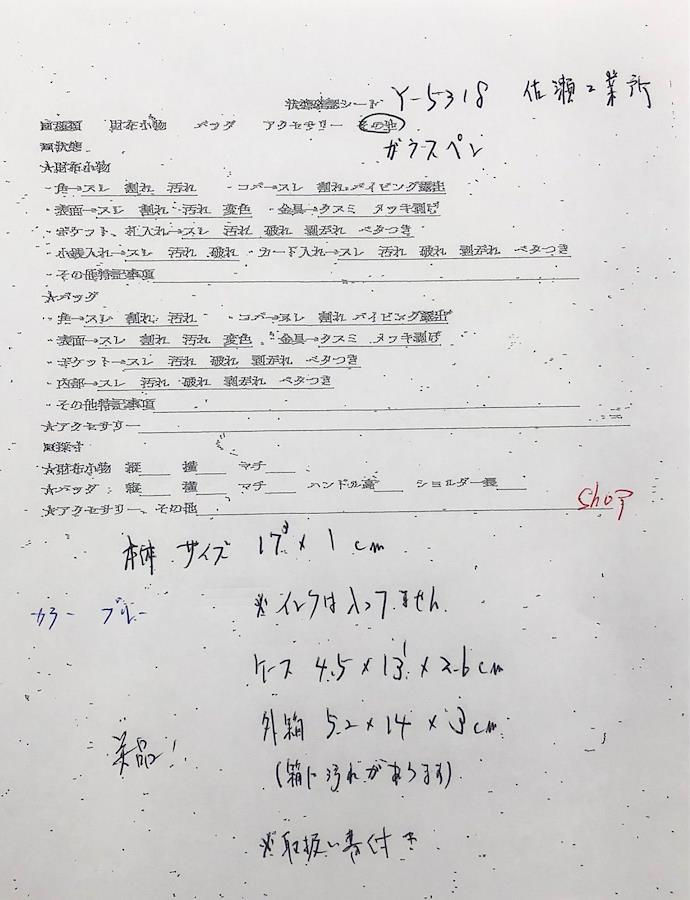 状態確認シート Y-5318 佐瀬工業所
■種類 財布小物 バッグ アクセサリー その他
ガラスペン
■状態
★財布小物
・角→スレ 割れ 汚れ ・コバ→スレ 割れ パイピング露出
・表面→スレ 割れ 汚れ 変色 ・金具→クスミ メッキ剥げ
・ポケット、札入れ→スレ 汚れ 破れ 剥がれ ベタつき
・小銭入れ→スレ 汚れ 破れ ・カード入れ→スレ 汚れ 破れ 剥がれ ベタつき
・その他特記事項
★バッグ
・角→スレ 割れ 汚れ ・コバ→スレ 割れ パイピング露出
・表面→スレ 割れ 汚れ 変色 ・金具→クスミ メッキ剥げ
・ポケット→スレ 汚れ 破れ 剥がれ ベタつき
・内部→スレ 汚れ 破れ 剥がれ ベタつき
・その他特記事項
★アクセサリー
■採寸
★財布小物 縦 横 マチ
★バッグ 縦 横 マチ ハンドル高 ショルダー長
★アクセサリー、その他
shop
本体 サイズ × 1 cm
カラー ブルー
※インクは入ってません
ケース 4.5 × × 2.6 cm
外箱 5.2 × 14 × 3 cm
美品!
(箱に汚れがあります)
※取扱い書付き